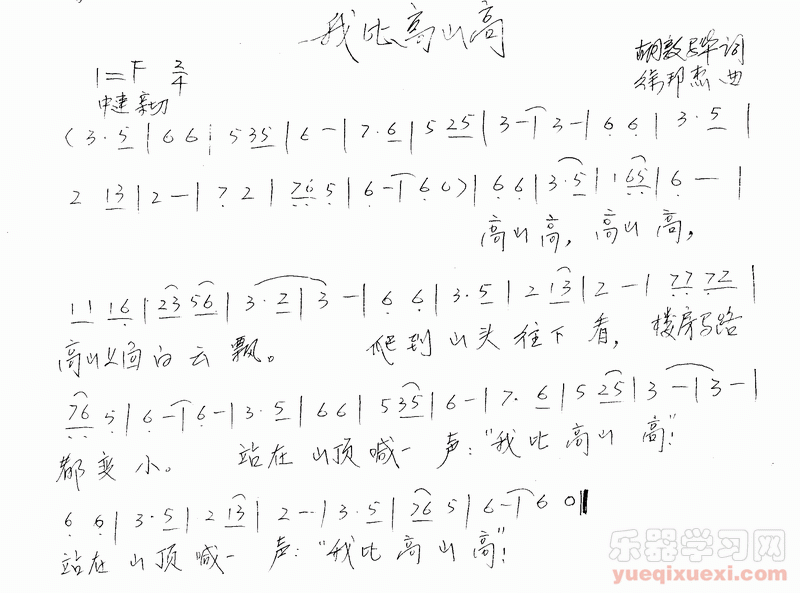 我比高山高
1=F 2/4
中速 亲切
胡敦骅 词
徐邦杰 曲
(3·5|66|535|6-|7·6|525|3-|3-|66|3·5|
2 13|2-|72|765|6-|60)|66|3·5|165|6-|
高山高，高山高，
11 16|23 56|3·2|3-|66|3·5|2 13|2-|77 72|
高山上面白云飘。 爬到山头往下看，楼房马路
765|6-|6-|3·5|66|535|6-|7·6|525|3-|3-|
都变小。 站在山顶喊一声："我比高山高！
66|3·5|2 13|2-|3·5|765|6-|60‖
站在山顶喊一声："我比高山高"！
乐器学习网
yueqixuexi.com